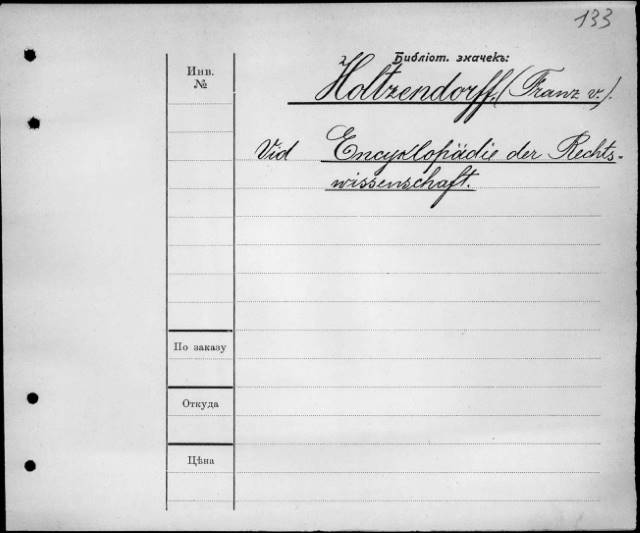 133
Библіот. значекъ:
Инв.
№
Holtzendorff. (Franz v.).
Vid Encyklopädie der Rechts-
wissenschaft.
По заказу
Откуда
Цѣна